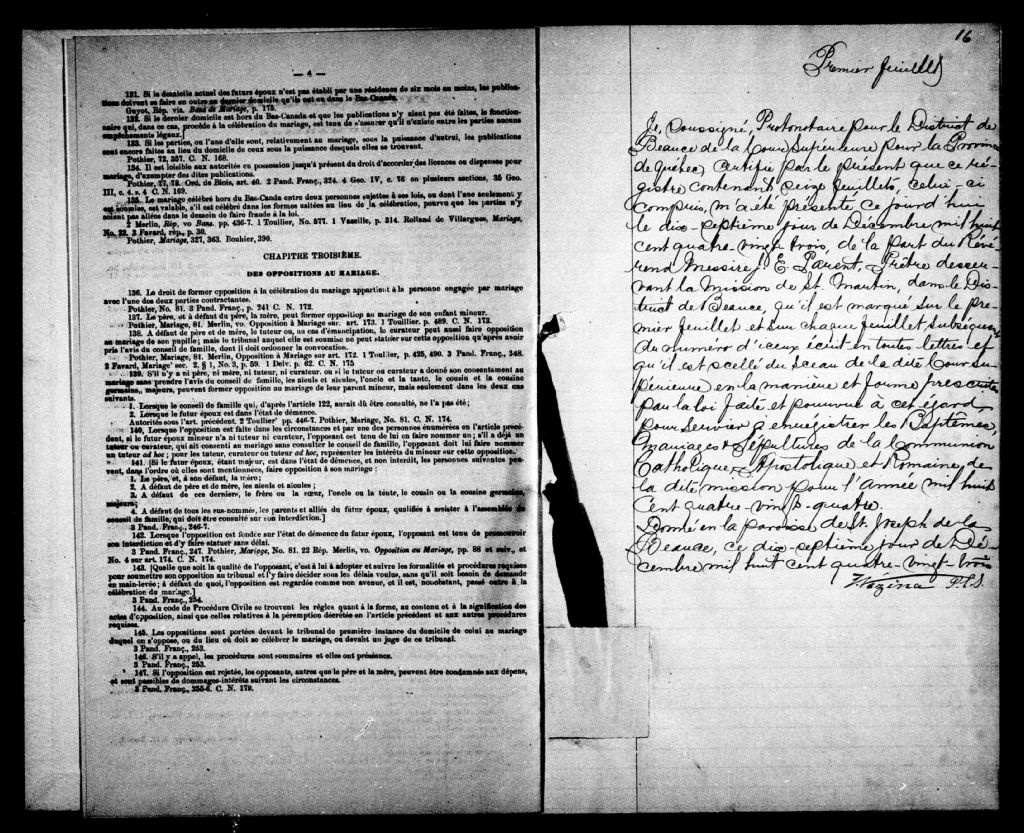 — 4 —
131. Si le domicile actuel des futurs époux n'est pas établi par une résidence de six mois au moins, les publica-
tions doivent se faire en outre au dernier domicile qu'ils ont eu dans le Bas-Canada.
Guyot, Rép. vis. Bans de Mariage, p. 175.
132. Si le dernier domicile est hors du Bas-Canada et que les publications n'y aient pas été faites, le fonction-
naire qui, dans ce cas, procède à la célébration du mariage, est tenu de s'assurer qu'il n'existe entre les parties aucuns
empêchements légaux.]
133. Si les parties, ou l'une d'elle sont, relativement au mariage, sous la puissance d'autrui, les publications
sont encore faites au lieu du domicile de ceux sous la puissance desquels elles se trouvent.
Pothier, 72, 357. C. N. 168.
134. Il est loisible aux autorités en possession jusqu'à présent du droit d'accorder des licences ou dispenses pour
mariage, d'exempter des dites publications.
Pothier, 77, 78. Ord. de Blois, art. 40. 2 Pand. Franç., 324. 4 Geo. IV, c. 76 en plusieurs sections, 35 Geo.
III, c. 4. s. 4 C. N. 169.
135. Le mariage célébré hors du Bas-Canada entre deux personnes sujettes à ses lois, ou dont l'une seulement y
est soumise, est valable, s'il est célébré dans les formes usitées au lieu de la célébration, pourvu que les parties n'y
soient pas allées dans le dessein de faire fraude à la loi.
2 Merlin, Rép, vo Bans. pp. 436-7. 1 Toullier, No. 577. 1 Vazeille, p. 314. Rolland de Villargues, Mariage,
No. 22. 3 Favard, rép., p. 30.
Pothier, Mariage, 327, 363. Bouhier, 390.
CHAPITRE TROISIÈME.
DES OPPOSITIONS AU MARIAGE.
136. Le droit de former opposition à la célébration du mariage appartient à la personne engagée par mariage
avec l'une des deux parties contractantes.
Pothier, No. 81. 3 Pand. Franç., p. 241 C. N. 172.
137. Le père, et à défaut du père, la mère, peut former opposition au mariage de son enfant mineur.
Pothier, Mariage, 81. Merlin, vo. Opposition à Mariage sur. art. 173. 1 Toullier. p. 489. C. N. 173.
138. A défaut de père et de mère, le tuteur ou, au cas d'émancipation, le curateur peut aussi faire opposition
au mariage de son pupille; mais le tribunal auquel elle est soumise ne peut statuer sur cette opposition qu'après avoir
pris l'avis du conseil de famille, dont il doit ordonner la convocation.
Pothier, Mariage, 81. Merlin, Opposition à Mariage sur art. 172. 1 Toullier, p. 435, 490. 3 Pand. Franç., 348.
2 Favard, Mariage' sec. 2, § 1, No. 3, p. 59. 1 Delv. p. 62. C. N. 175
139. S'il n'y a ni père, ni mère, ni tuteur, ni curateur, ou si le tuteur ou curateur a donné son consentement au
mariage sans prendre l'avis du conseil de famille, les aïeuls et aïeules, l'oncle et la tante, le cousin et la cousine
germains, majeurs, peuvent former opposition au mariage de leur parent mineur, mais seulement dans les deux cas
suivants.
1. Lorsque le conseil de famille qui, d'après l'article 122, aurait dû être consulté, ne l'a pas été;
2. Lorsque le futur époux est dans l'état de démence.
Autorités sous l'art. précédent. 2 Toullier' pp. 446-7. Pothier, Mariage, No. 81. C. N. 174.
140. Lorsque l'opposition est faite dans les circonstances et par une des personnes énumérées en l'article précé-
dent, si le futur époux mineur n'a ni tuteur ni curateur, l'opposant est tenu de lui en faire nommer un; s'il a déjà un
tuteur ou curateur, qui ait consenti au mariage sans consulter le conseil de famille, l'opposant doit lui faire nommer
un tuteur ad hoc; pour les tuteur, curateur ou tuteur ad hoc, représenter les intérêts du mineur sur cette opposition.
141. [Si le futur époux, étant majeur, est dans l'état de démence, et non interdit, les personnes suivantes peu-
vent, dans l'ordre où elles sont mentionnées, faire opposition à son mariage:
1. Le père, et, à son défaut, la mère;
2. A défaut de père et de mère, les aïeuls et aïeules;
3. A défaut de ces derniers, le frère ou la sœur, l'oncle ou la tante, le cousin ou la cousine germains,
majeurs;
4. A défaut de tous les sus-nommés, les parents et alliés du futur époux, qualifiés à assister à l'assemblée du
conseil de famille, qui doit être consulté sur son interdiction.]
3 Pand. Franç., 246-7.
142. Lorsque l'opposition est fondée sur l'état de démence du futur époux, l'opposant est tenu de promouvoir
son interdiction et d'y faire statuer sans délai.
3 Pand. Franç., 247. Pothier, Mariage, No. 81. 22 Rép. Merlin, vo. Opposition au Mariage, pp. 88 et suiv., et
No. 4 sur art. 174. C. N. 174.
143. [Quelle que soit la qualité de l'opposant, c'est à lui à adopter et suivre les formalités et procédures requises
pour soumettre son opposition au tribunal et l'y faire décider sous les délais voulus, sans qu'il soit besoin de demande
en main-levée; à défaut de quoi, l'opposition est regardée comme non avenue, et il est, nonobstant, passé outre à la
célébration du mariage.]
3 Pand. Franç., 254.
144. Au code de Procédure Civile se trouvent les règles quant à la forme, au contenu et à la signification des
actes d'opposition, ainsi que celles relatives à la péremption décrétée en l'article précédent et aux autres procédures
requises.
145. Les oppositions sont portées devant le tribunal de première instance du domicile de celui au mariage
duquel on s'oppose, ou du lieu où doit se célébrer le mariage, ou devant un juge de ce tribunal.
3 Pand. Franç., 253.
146. S'il y a appel, les procédures sont sommaires et elles ont préséance.
3 Pand. Franç., 253.
147. Si l'opposition est rejetée, les opposants, autres que le père et la mère, peuvent être condamnés aux dépens,
et sont passibles de dommages-intérêts suivant les circonstances.
3 Pand. Franç., 255-6. C. N. 179.
16
Premier feuillet
Je, soussigné, Protonotaire pour le District de
Beauce de la Cour Supérieure pour la Provin
de Québec, certifie par le présent que ce ré-
gistre contenant seize feuillets, celui-ci
compris, m'a été présenté ce jourd'hui
le dix-septième jour de Décembre mil huit
cent quatre-vingt trois, de la part du Révé-
rend Messire J. E. Parent, Prêtre desser-
vant la Mission de St. Martin, dans le Dis-
trict de Beauce, qu'il est marqué sur le pre-
mier feuillet et sur chaque feuillet subséquent
du numéro d'iceux écrit en toutes lettres et
qu'il est scellé du sceau de la dite Cour Su-
périeure en la manière et forme prescrite
par la loi faite et pourvue à cet égard
pour servir à enregistrer les Baptêmes,
Mariages & Sépultures de la Communion
Catholique, Apostolique et Romaine, de
la dite mission pour l'année mil huit
cent quatre-vingt-quatre.
Donné en la paroisse de St. Joseph de la
Beauce, ce dix-septième jour de Dé-
cembre mil huit cent quatre-vingt-trois
Vézina P.C.S.